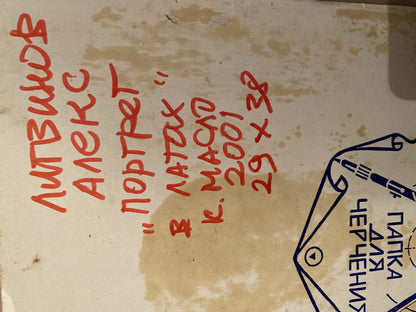 ЛИТВИНОВ
АЛЕКС
"ПОРТРЕТ
В ЛАТАХ"
К. МАСЛО
2001
29 x 38
ПАПКА
ДЛЯ
ЧЕРЧЕНИЯ